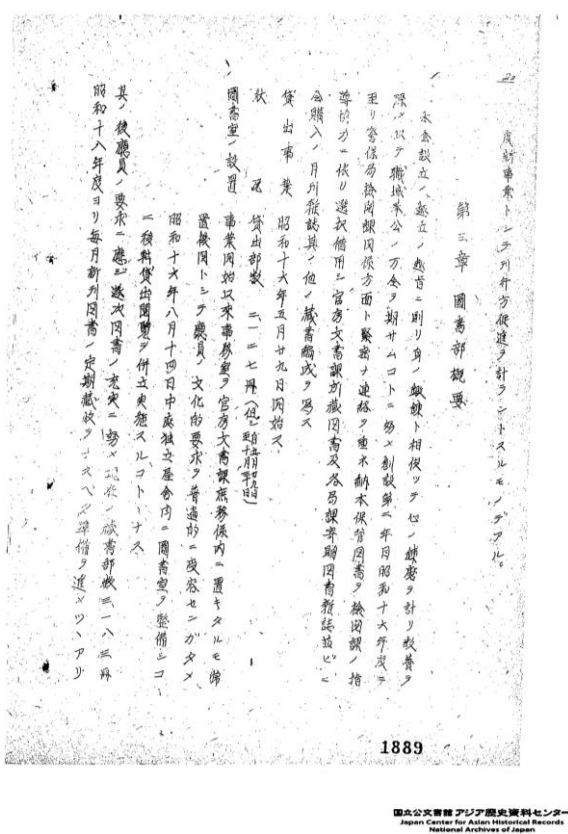 22
度新事業トシテ刊行方促進ヲ計ラントスルモノデアル。
第三章 圖書部概要
本会設立ノ趣旨ニ則リ身ノ鍛錬ト相俟ッテ心ノ錬磨ヲ計リ教養ヲ
以テ職域奉公ノ万全ヲ期サムコトニ努メ創設第二年目昭和十六年度ニ
至リ警保局検閲課図書係方面ト緊密ナ連絡ヲ納本保管図書ヲ検閲課ノ指
導協力ニ依リ選択借用シ官房文書課所蔵図書及各局課寄贈図書雑誌並ビニ
購入ノ月刊雑誌其ノ他ノ蔵書編成ヲ為ス
貸出事業 昭和十六年五月廿九日開始ス
状況 貸出部数 二一二七冊(但シ自五月廿九日至十月半日)
圖書室ノ設置 事業開始以来事務室ヲ官房文書課庶務係内ニ置キタルモ
置機関トシテ廳員ノ文化的要求ヲ普遍的ニ受容センガタメ
昭和十六年八月十四日中庭独立屋舎内ニ圖書室ヲ整備シコ
ニ移転貸出閲覧ヲ併立実施スルコトヽナス
其ノ後廳員ノ要求ニ應ジ逐次図書ノ充実ニ努メ現在ノ蔵書部数三一八三冊
昭和十八年度ヨリ毎月新刊図書ノ定期蔵收ヲナスベク準備ヲ進メツヽアリ
1889
国立公文書館 アジア歴史資料センター
Japan Center for Asian Historical Records
National Archives of Japan